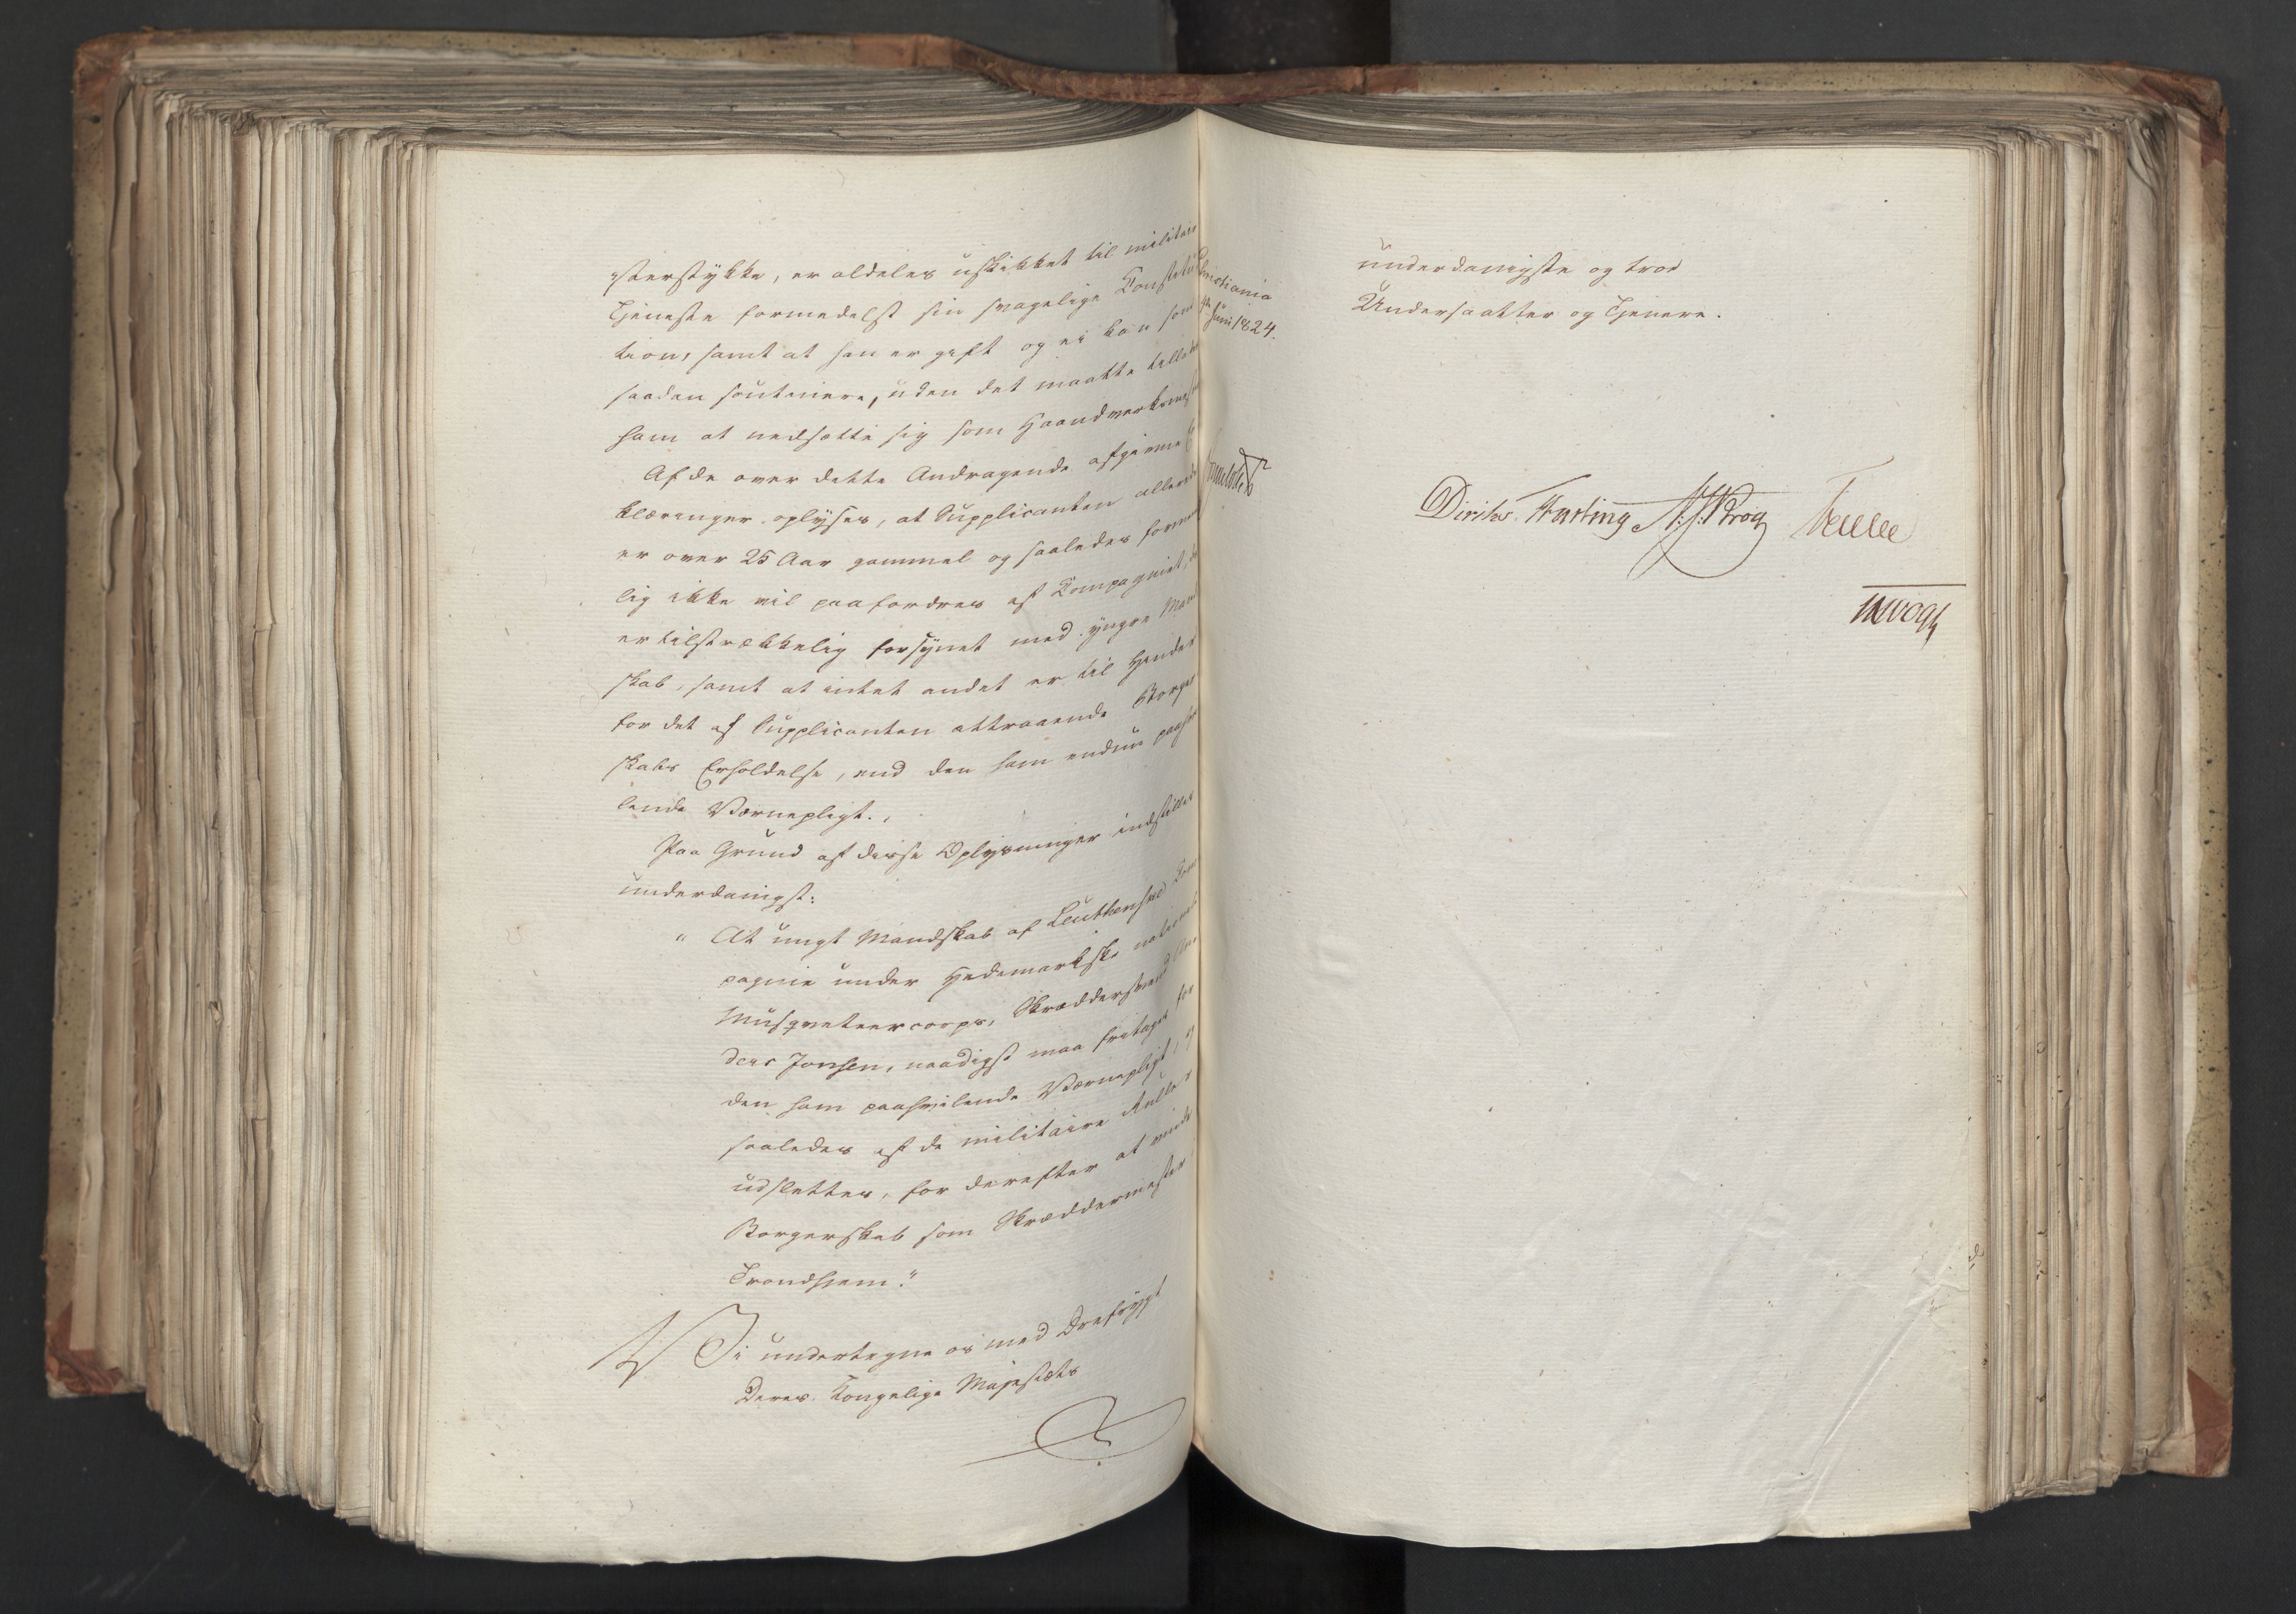 terstykke, er aldeles uskikket til militair
Tjeneste formedelst sin svagelige Constitu
tion, samt at han er gift og ei kan som
saadan soutenere, uden det maatte tillades
ham at nedsætte sig som Haandverksmest
Af de over dette Andragende afgivne Er
klæringer oplyses, at Supplicanten allerede
er over 25 Aar gammel og saaledes formo
lig ikke vil paafordres af Compagniet, da
er tilstrækkelig forsynet med yngre Mand
skab, samt at intet andet er til Hinder
for det af Supplicanten attraaende Borger
skabs Erholdelse, end den ham endnu paahvi
lende Værnepligt.
Paa Grund af disse Oplysninger indstilles
underdanigst:
"At ungt Mandskab af Leuthenske Com
pagnie under Hedemarkske nationale
Musqueteercorps, Skræddersvend An
ders Jonsen, naadigst maa fritages for
den ham paahvilende Værnepligt, og
saaledes af de militaire Ruller
udslettes, for derefter at vinde
Borgerskab som Skræddermester i
Trondhjem."
Vi undertegne os med Ærefrygt
Deres Kongelige Majestæts
Christiania
Juni 1824.
underdanigste og troe
Undersaatter og Tjenere.
Diriks Hasting Krog
MVogt